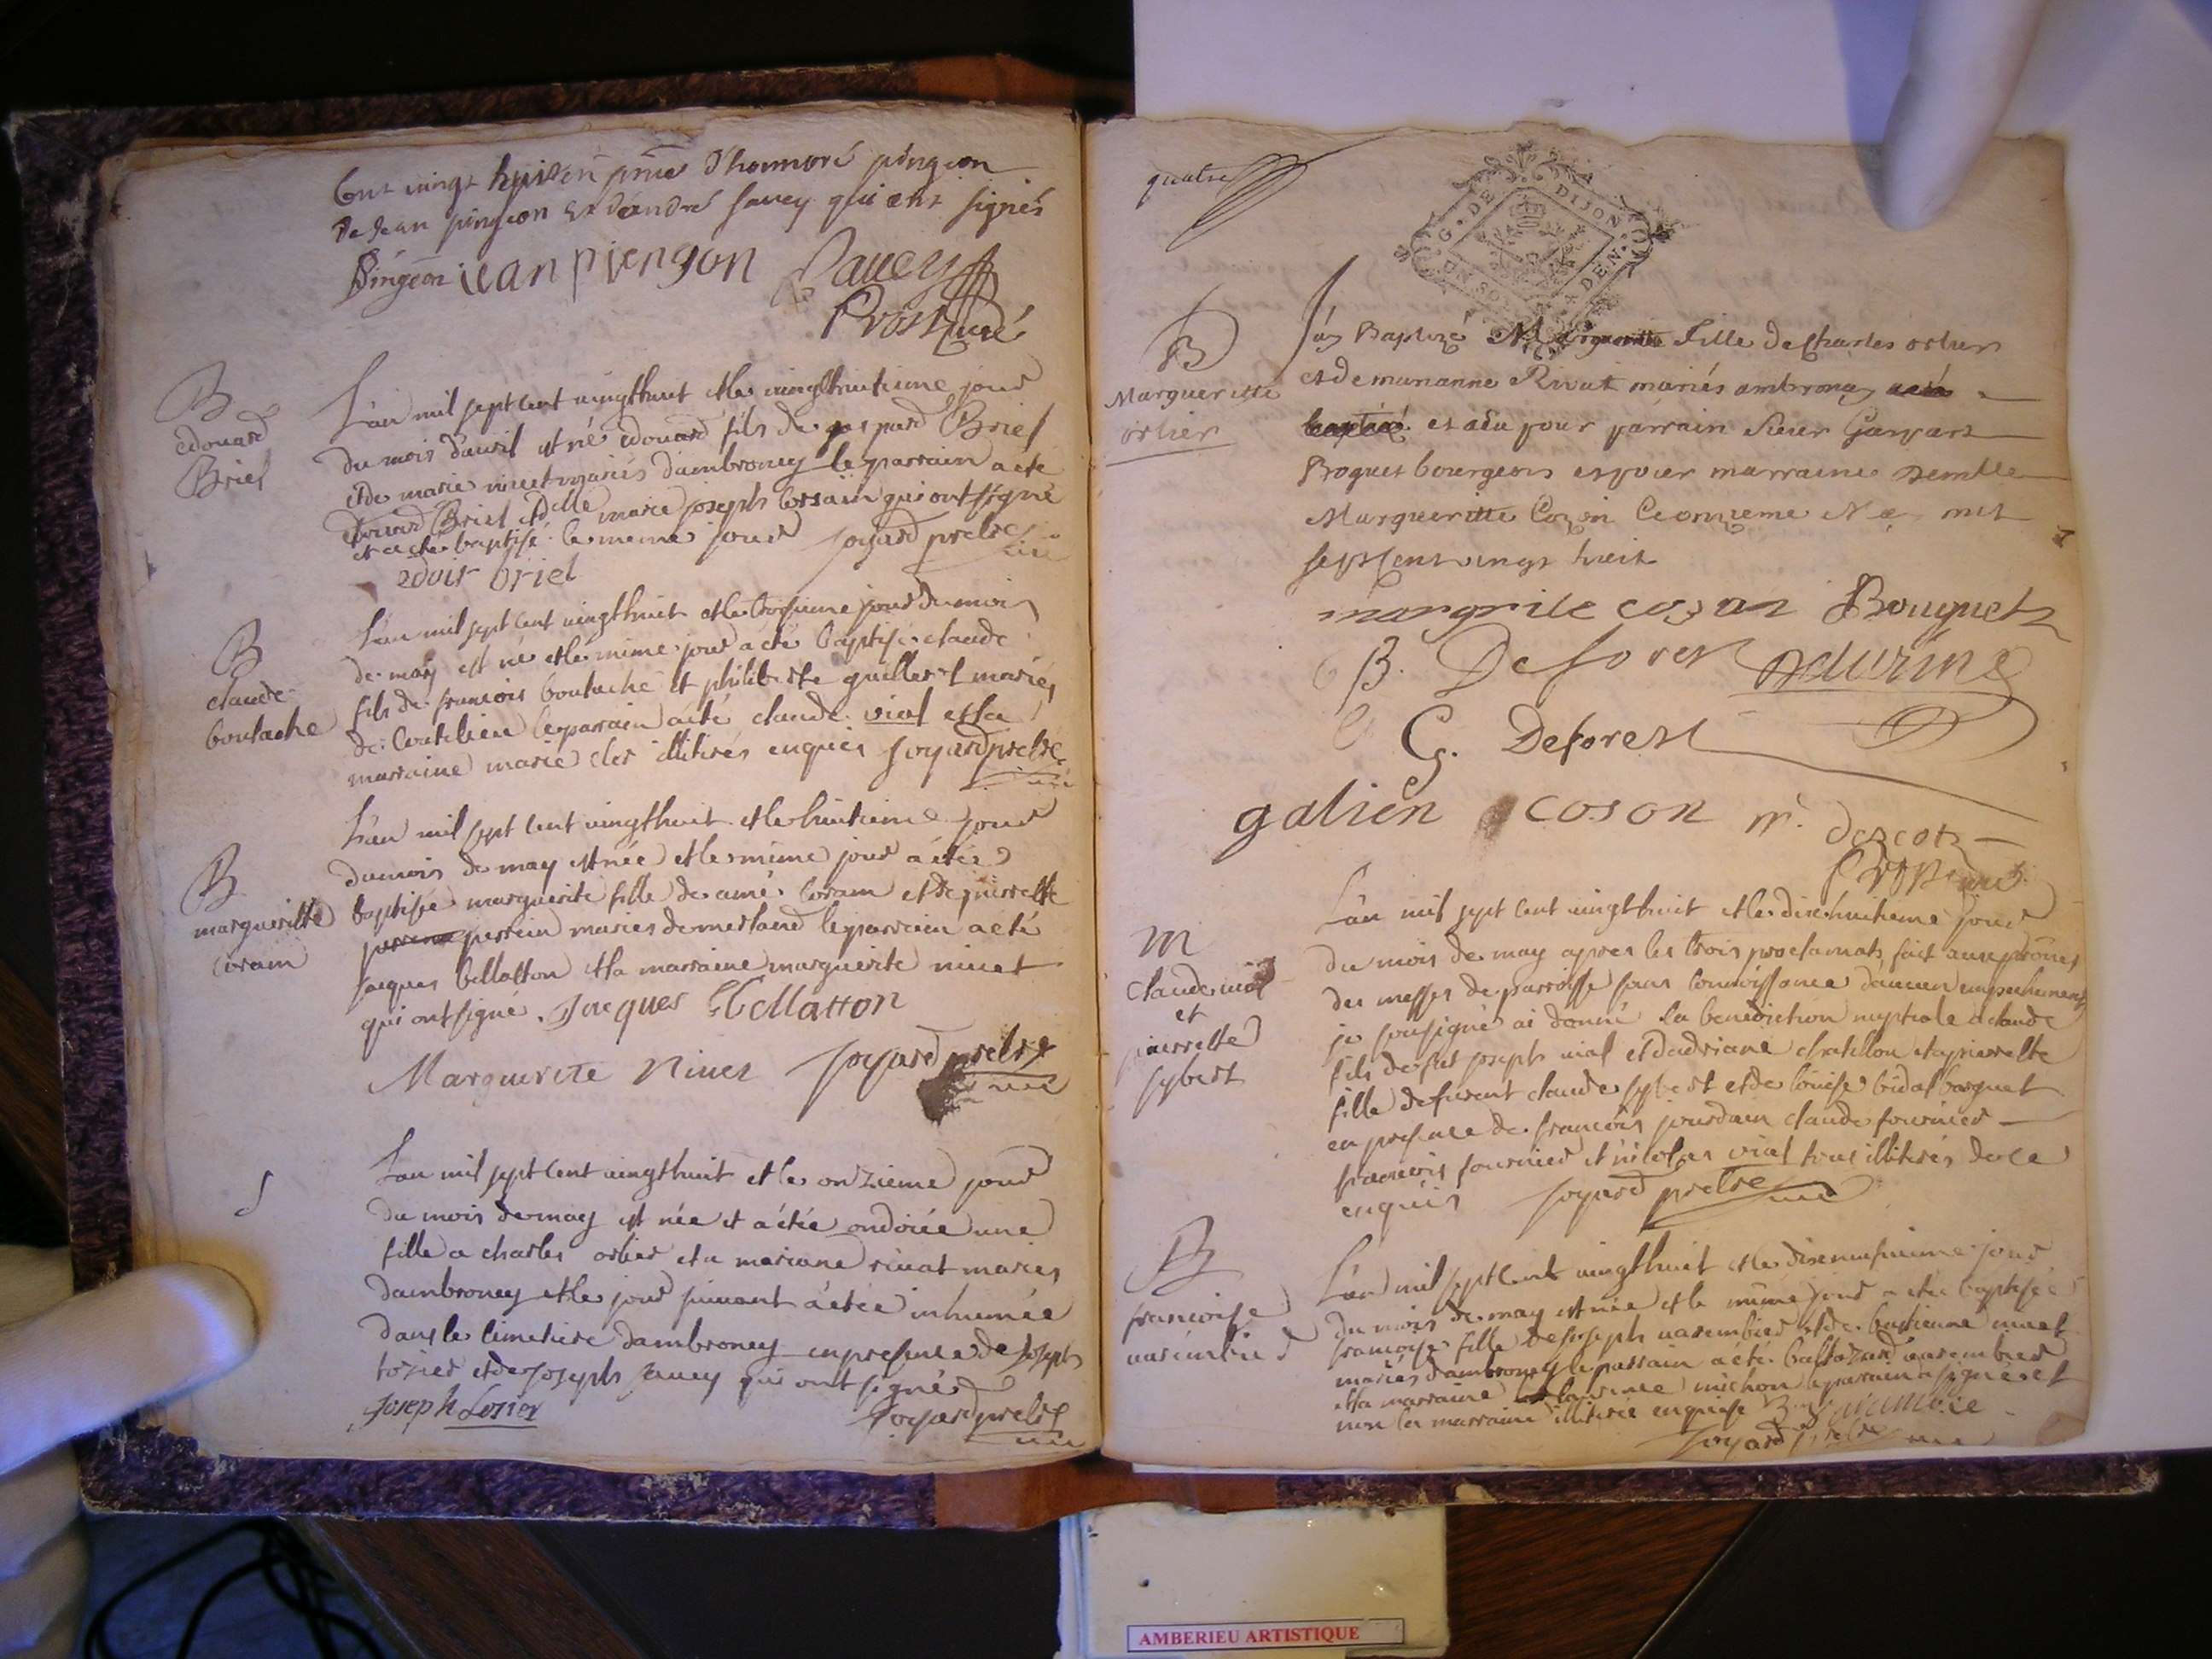 Cent vingt huit en pnce d'honnoré pingeon
de Jean pingeon et d'andré sauey qui ont signés
Pingeon jean piengon Sauey
Prost curé
B
édouard
Briel
L'an mil sept cent vingthuit et le vingthuitieme jour
du mois d'auril est né édouard fils de gaspard Briel
et de marie niuet mariés d'ambroney le parrain a eté
édouard Briel et dlle marie joseph corsain qui ont signé
et a eté baptisé le meme jour joyard prebtre
edoir briel
B
claude
boutache
L'an mil sept cent vingthuit et le troisieme jour du mois
de may est né et le mime jour a eté baptisé claude
fils de francois boutache et philiberte guillerst mariés
de le parrain a eté claude vial et la
marraine marie clet illitirés enquis joyard prebtre
B
margueritte
coram
L'an mil sept cent vingthuit et le huitieme jour
du mois de may est née et le mime jour a étée
baptisée marguerite fille de amé coram et de pierrette
perrein maries de merland le parrain a eté
jacques bellatton et la marraine marguerite niuet
qui ont signé. Jacques Bellatton
Marguerite Niuet joyard prebtre
S
L'an mil sept cent vingthuit et le onzieme jour
du mois de may est née et a étée ondoiée une
fille a charles orlier et a mariane riuat maries
d'ambroney et le jour suiuant a étée inhumée
dans le cimetiere d'ambroney en presence de joseph
losier et de joseph sauey qui ont signé
Joseph Losier joyard prebtre
quatre
G. DE DIJON
UN SOL DEN.
B
Margueritte
orlier
J'ay Baptizé Margueritte Fille de Charles orlier
et de marianne Rivat mariés ambronay
et a eu pour parrain Sieur Gaspart
Boguet bourgeois et pour marraine Demlle
Margueritte Cozon Ce onzieme may mil
sept cent vingt huit
margrite cozon Bouguet
B. Deforest
G. Deforest
galien coson
Prost curé
M
Claude vial
et
pierrette
sybert
L'an mil sept cent vingthuit et le dixhuitieme jour
du mois de may apres les trois proclamats fait aux prônes
des messes de parroisse sans connoissance d'aucun empechement
je sousigné ai donné la benediction nuptiale a claude
fils de fut joseph vial et d'adriane chatillon et a pierrette
fille defunt claude sybert et de louise bidal basquet
en presence de françois jourdain claude fournier
francois fournier et nicolas vial tous illitirés de ce
enquis joyard prebtre
B
francoise
uarembier
L'an mil sept cent vingthuit et le disneufuieme jour
du mois de may est née et le mime jour a etée baptisée
francoise fille de joseph uarembier et de bastienne niuet
mariés d'ambroney le parrain a eté baltazard uarembier
et la marraine laurence michon le parrain a signé et
non la marraine illitirée enquise B. uarambie
joyard prebtre
AMBERIEU ARTISTIQUE